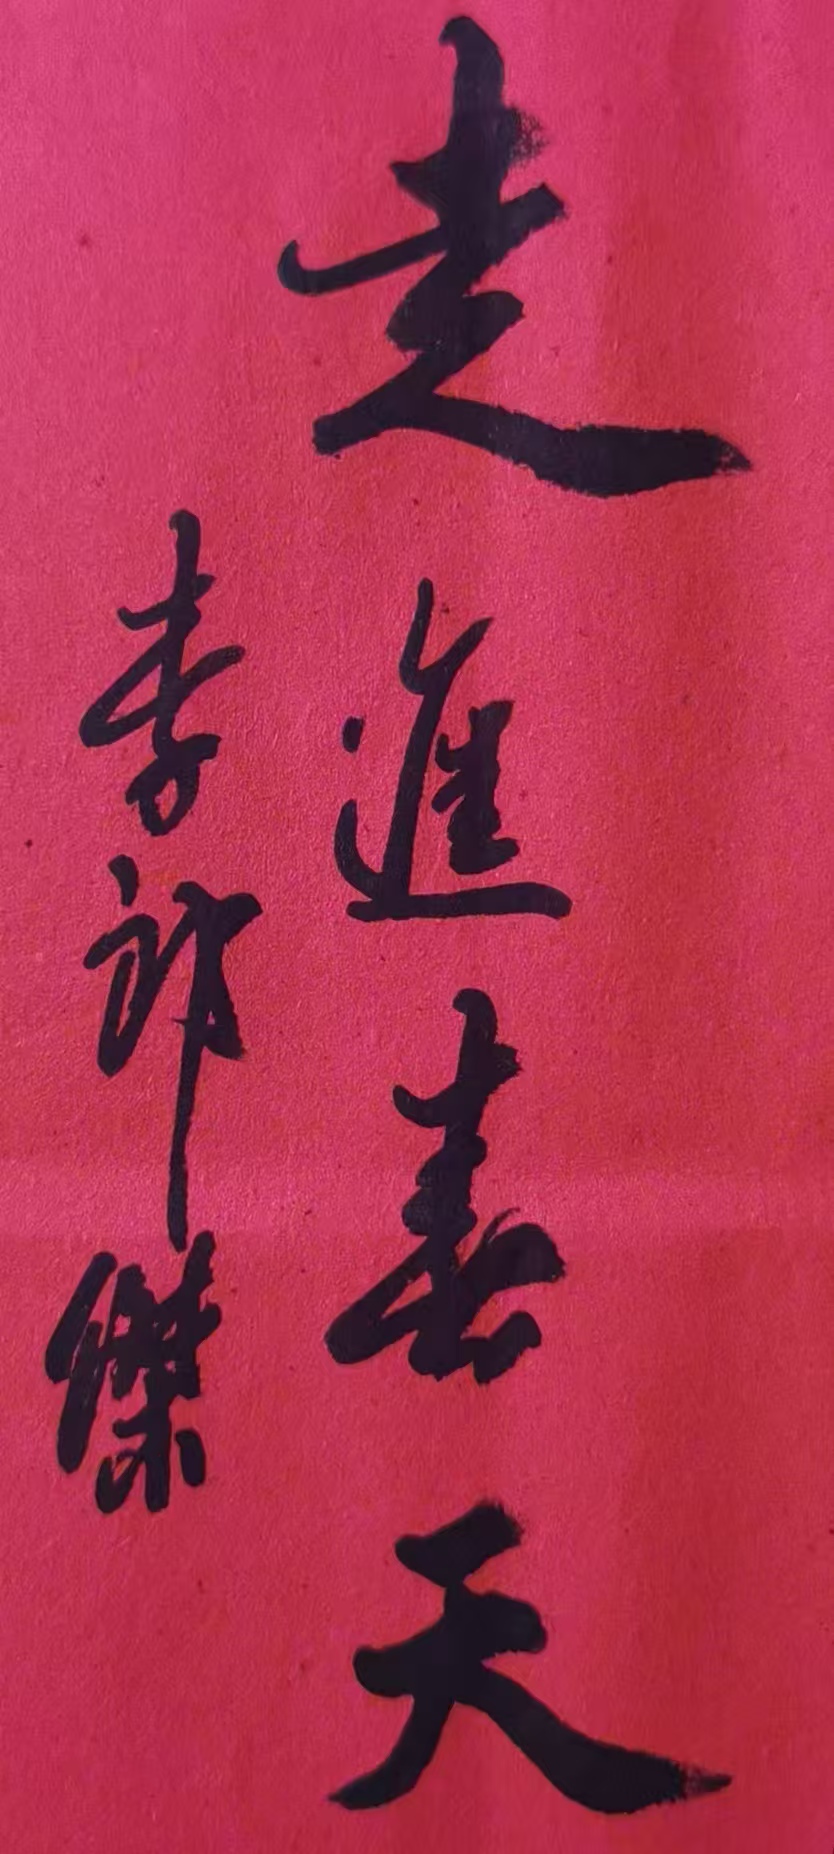 走進春天
李郎傑